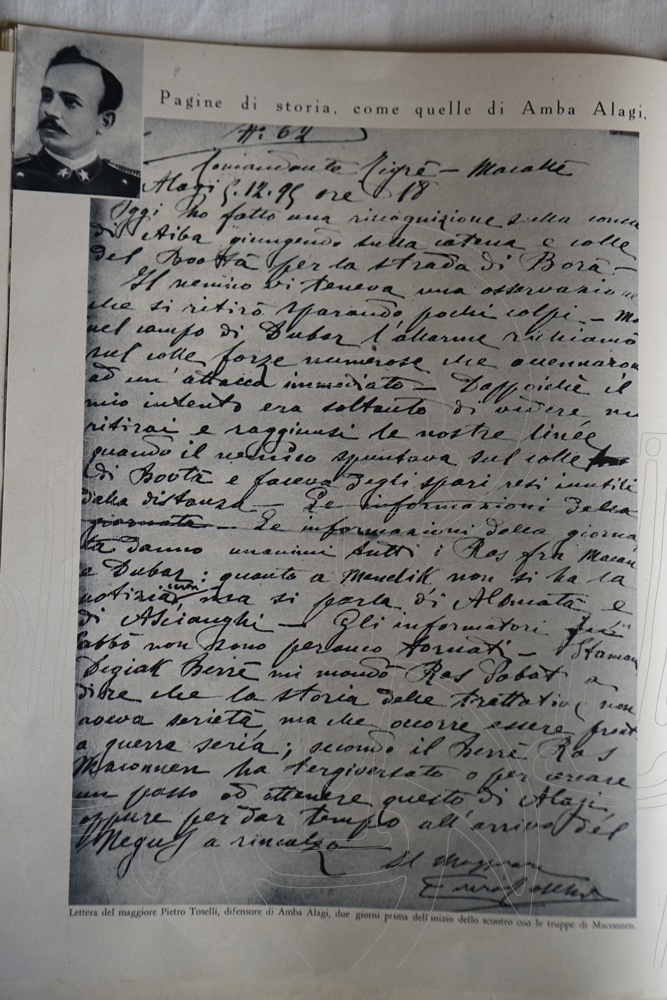 Pagine di storia, come quelle di Amba Alagi,
N. 62
Comandante Tigrè – Macallè
Alagi 5.12.95 ore 18
Oggi ho fatto una ricognizione sulla conca
di Aiba giungendo sulla catena e colle
del Bootà per la strada di Bora –
Il nemico vi teneva una osservazione
che si ritirò sparando pochi colpi – Ma
nel campo di Dubar l'allarme richiamò
sul colle forze numerose che accennarono
ad un'attacco immediato – Dappoichè il
mio intento era soltanto di vedere mi
ritirai e raggiunsi le nostre linee
quando il nemico spuntava sul colle
di Bootà e faceva degli spari resi inutili
dalla distanza – Le informazioni della
giornata – Le informazioni della giorna
ta danno unanimi tutti i Ras fra Macan
e Dubar; quanto a Menelik non si ha la
notizia ma si parla di Alomatà e
di Ascianghi – Gli informatori
non sono peranco tornati – Stamane
Degiak Berrè mi mandò Ras a
dire che la storia delle trattative non
aveva serietà ma che occorre essere pront
a guerra seria; secondo il Berrè Ras
Maconnen ha tergiversato o per cercare
un passo ad ottenere questo di Alagi
oppure per dar tempo all'arrivo del
Negus a rincalzo
Il Maggiore
Lettera del maggiore Pietro Toselli, difensore di Amba Alagi, due giorni prima dell'inizio dello scontro con le truppe di Maconnen.